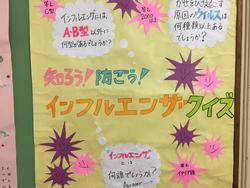 答えC型
インフルエンザには
A・B型以外に
何型があるでしょうか?
答え
200以上
かぜをひき起こす
原因のウイルスは
何種類以上ある
でしょうか?
知ろう!防ごう!
インフルエンザクイズ
インフルエンザ
とは
何語でしょうか?
答え
イタリア語